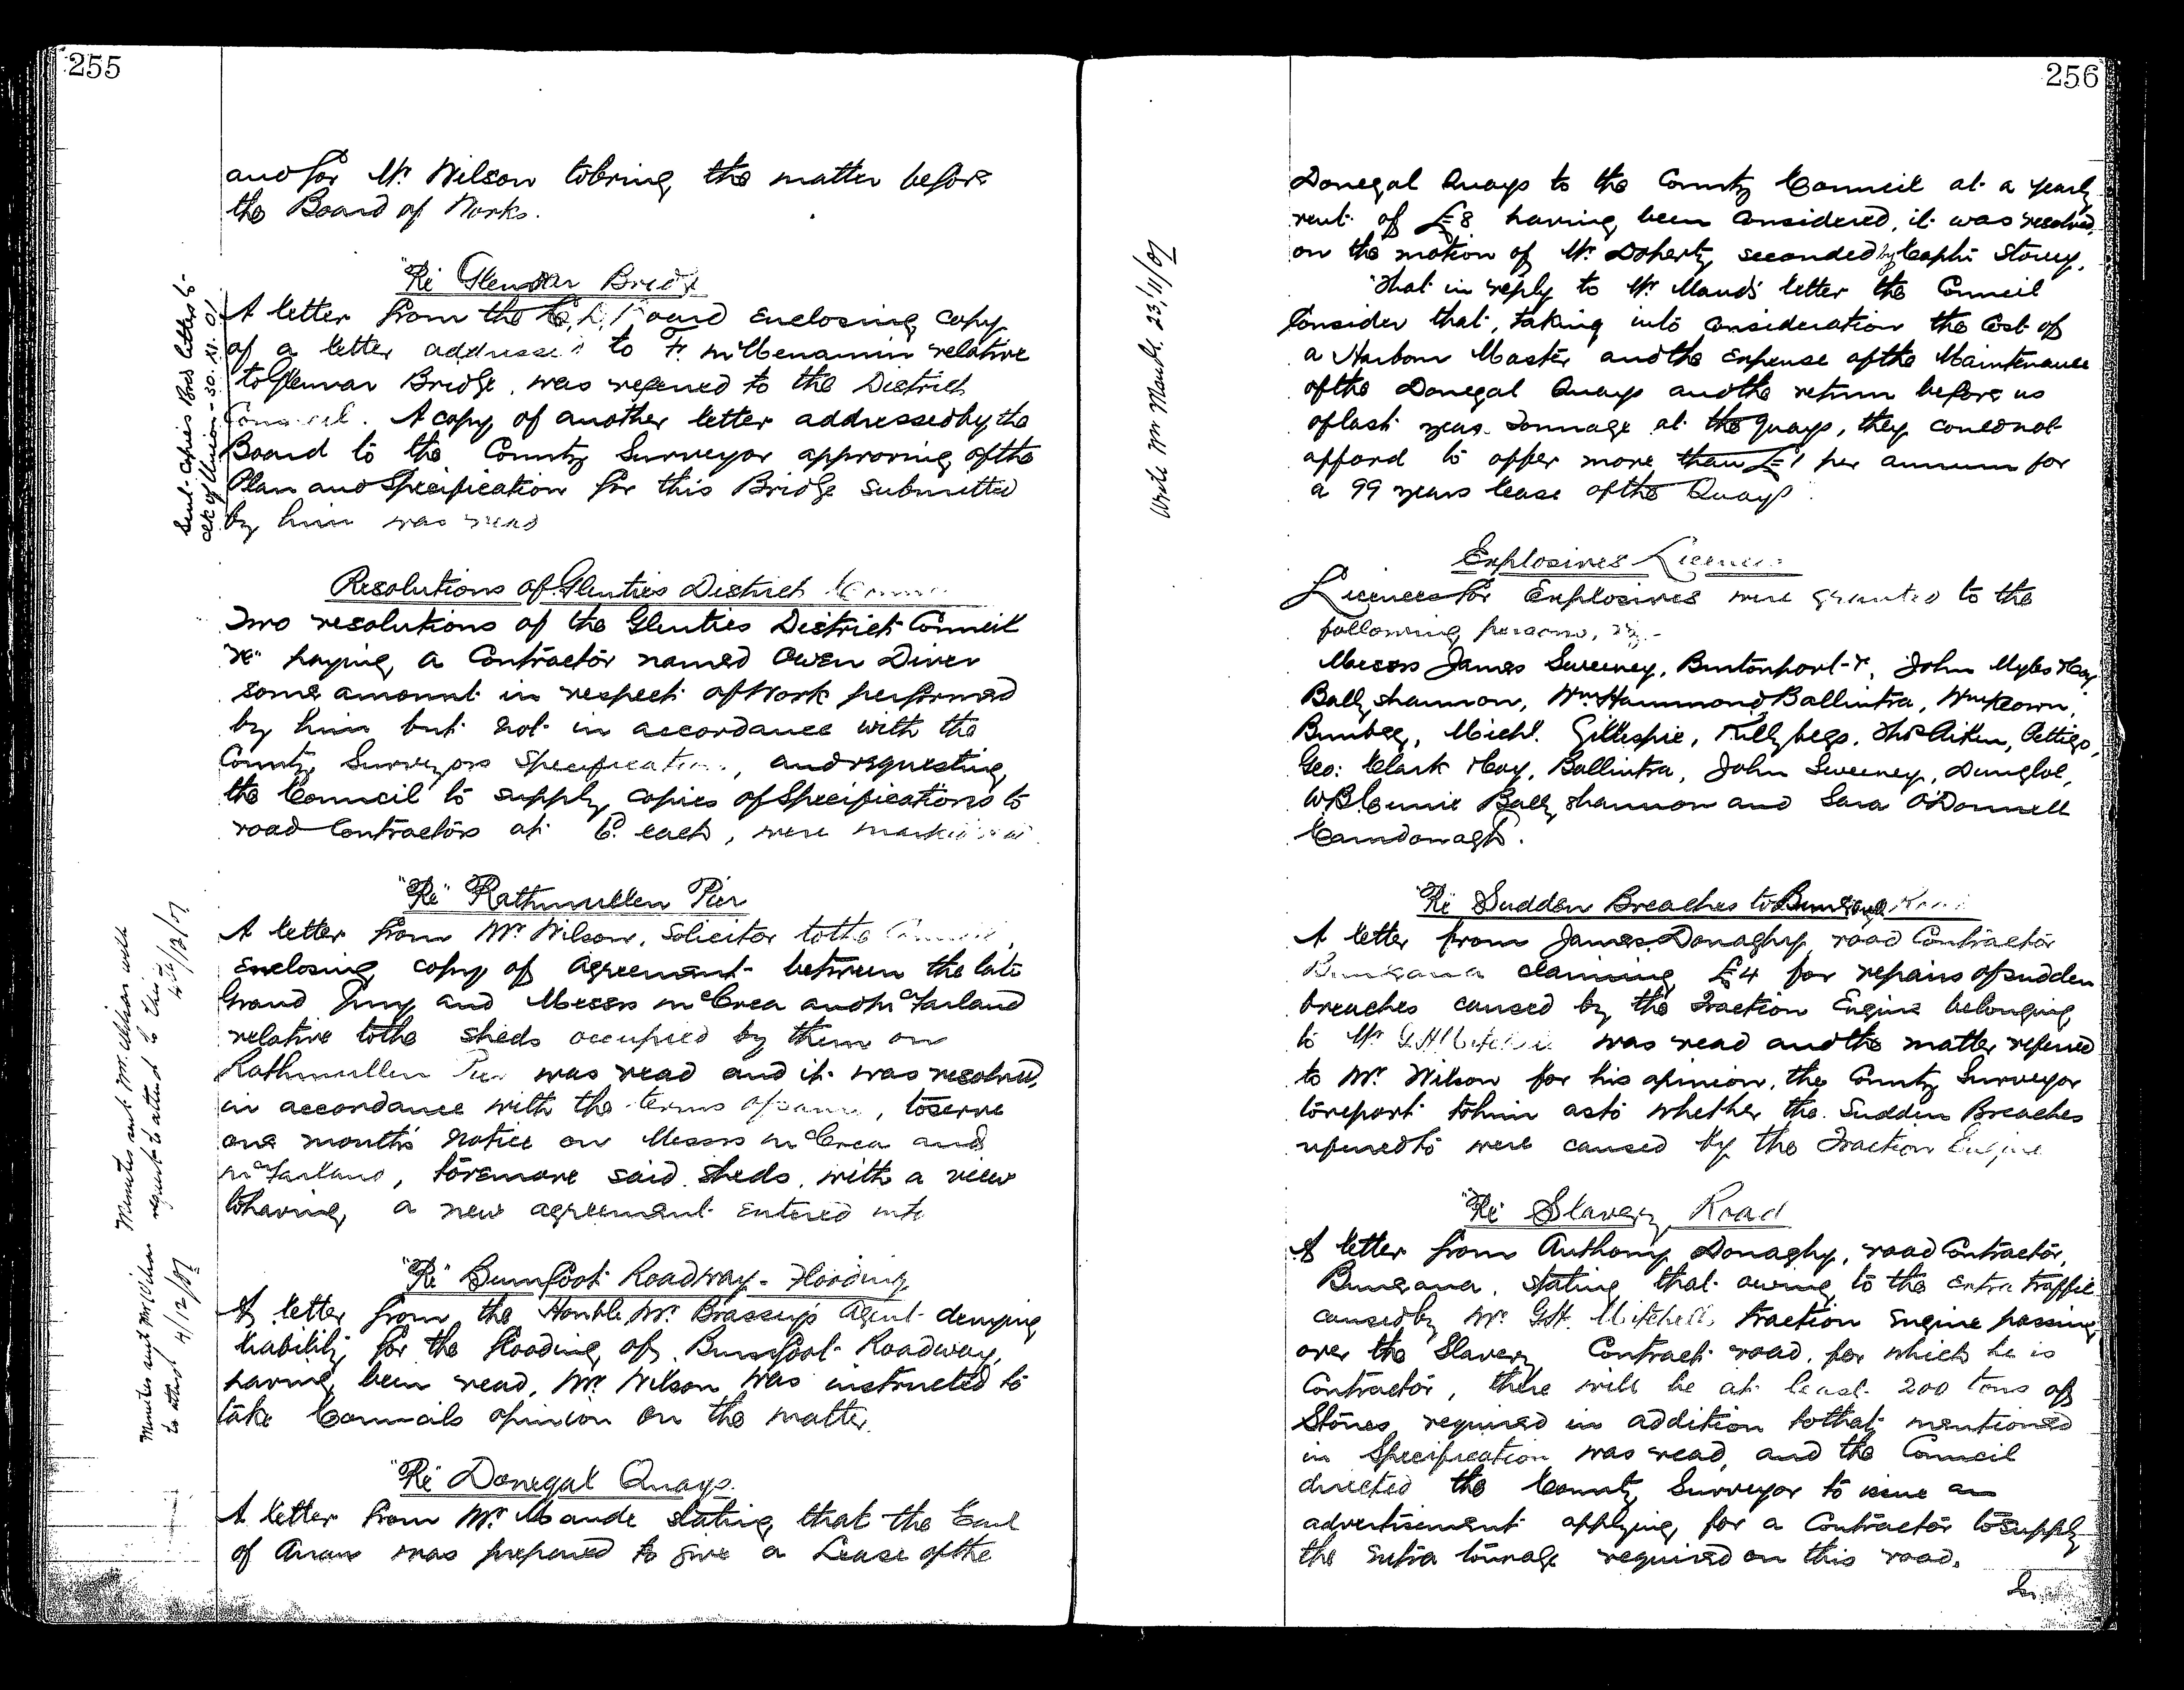 255
and for Mr. Wilson to bring the matter before
the Board of Works.
"Re" Glenvar Bridge
A letter from the C. D. Board enclosing copy
of a letter addressed to Fr. McMenamin relative
to Glenvar Bridge, was referred to the District
Council. A copy of another letter addressed by the
Board to the County Surveyor approving of the
Plan and Specification for this Bridge submitted
by him was read
Sent copies Bord letters to
Clk of Union - 30.XI.01
Resolutions of Glenties District
Two resolutions of the Glenties District Council
"re" paying a Contractor named Owen Diver
some amount in respect of Work performed
by him but not in accordance with the
County Surveyors Specification, and requesting
the Council to supply copies of Specifications to
road Contractors at 6d. each, were marked read
"Re" Rathmullen Pier
A letter from Mr. Wilson, Solicitor to the Council,
enclosing copy of Agreement between the late
Grand Jury and Messrs McCrea and McFarland
relative to the sheds occupied by them on
Rathmullen Pier was read and it was resolved,
in accordance with the terms of same, to serve
one month's notice on Messrs McCrea and
McFarland, to remove said sheds, with a view
to having a new agreement entered into
Minutes sent Mr. Wilson with
request to attend to this
4th/12/01
"Re" Burnfoot Roadway - Flooding
A letter from the Honble Mr. Brassey's Agent denying
liability for the flooding of Burnfoot Roadway,
having been read, Mr. Wilson was instructed to
take Counsels opinion on the matter.
Minutes sent Mr Wilson
to attend 4/12/01
"Re" Donegal Quays.
A letter from Mr. Maude stating that the Earl
of Arran was prepared to give a Lease of the
256
Donegal Quays to the County Council at a yearly
rent of £8 having been considered, it was resolved,
on the motion of Mr. Doherty seconded by Capt. Storey,
"That in reply to Mr. Maude's letter the Council
Consider that, taking into consideration the Cost of
a Harbour Master and the expense of the Maintenance
of the Donegal Quays and the return before us
of last years Tonnage at the Quays, they could not
afford to offer more than £1 per annum for
a 99 years lease of the Quays
Write Mr Maude 23/11/01
Explosives Licences
Licences for Explosives were granted to the
following persons, viz.-
Messrs James Sweeney, Burtonport, John Myles & Coy
Ballyshannon, Wm. Hammond Ballintra, Wm Keown,
Bunbeg, Michl. Gillespie, Killybegs, Thos Aiken, Pettigo,
Geo: Clark & Coy, Ballintra, John Sweeney, Dungloe,
Ballyshannon and Sara O'Donnell
Carndonagh.
"Re" Sudden Breaches to Buncrana Road
A letter from James Donaghy, road Contractor
Buncrana claiming £4 for repairs of sudden
breaches caused by the Traction Engine belonging
to Mr G. H. Mitchell was read and the matter referred
to Mr. Wilson for his opinion, the County Surveyor
to report to him as to whether the Sudden Breaches
referred to were caused by the Traction Engine
"Re" Slavery Road
A letter from Anthony Donaghy, road Contractor,
Buncrana, stating that owing to the extra traffic
caused by Mr. G. H. Mitchells traction Engine passing
over the Slavery Contract road, for which he is
Contractor, there will be at least 200 tons of
Stones required in addition to that mentioned
in Specification was read, and the Council
directed the County Surveyor to issue an
advertisement applying for a Contractor to supply
the extra tonnage required on this road.